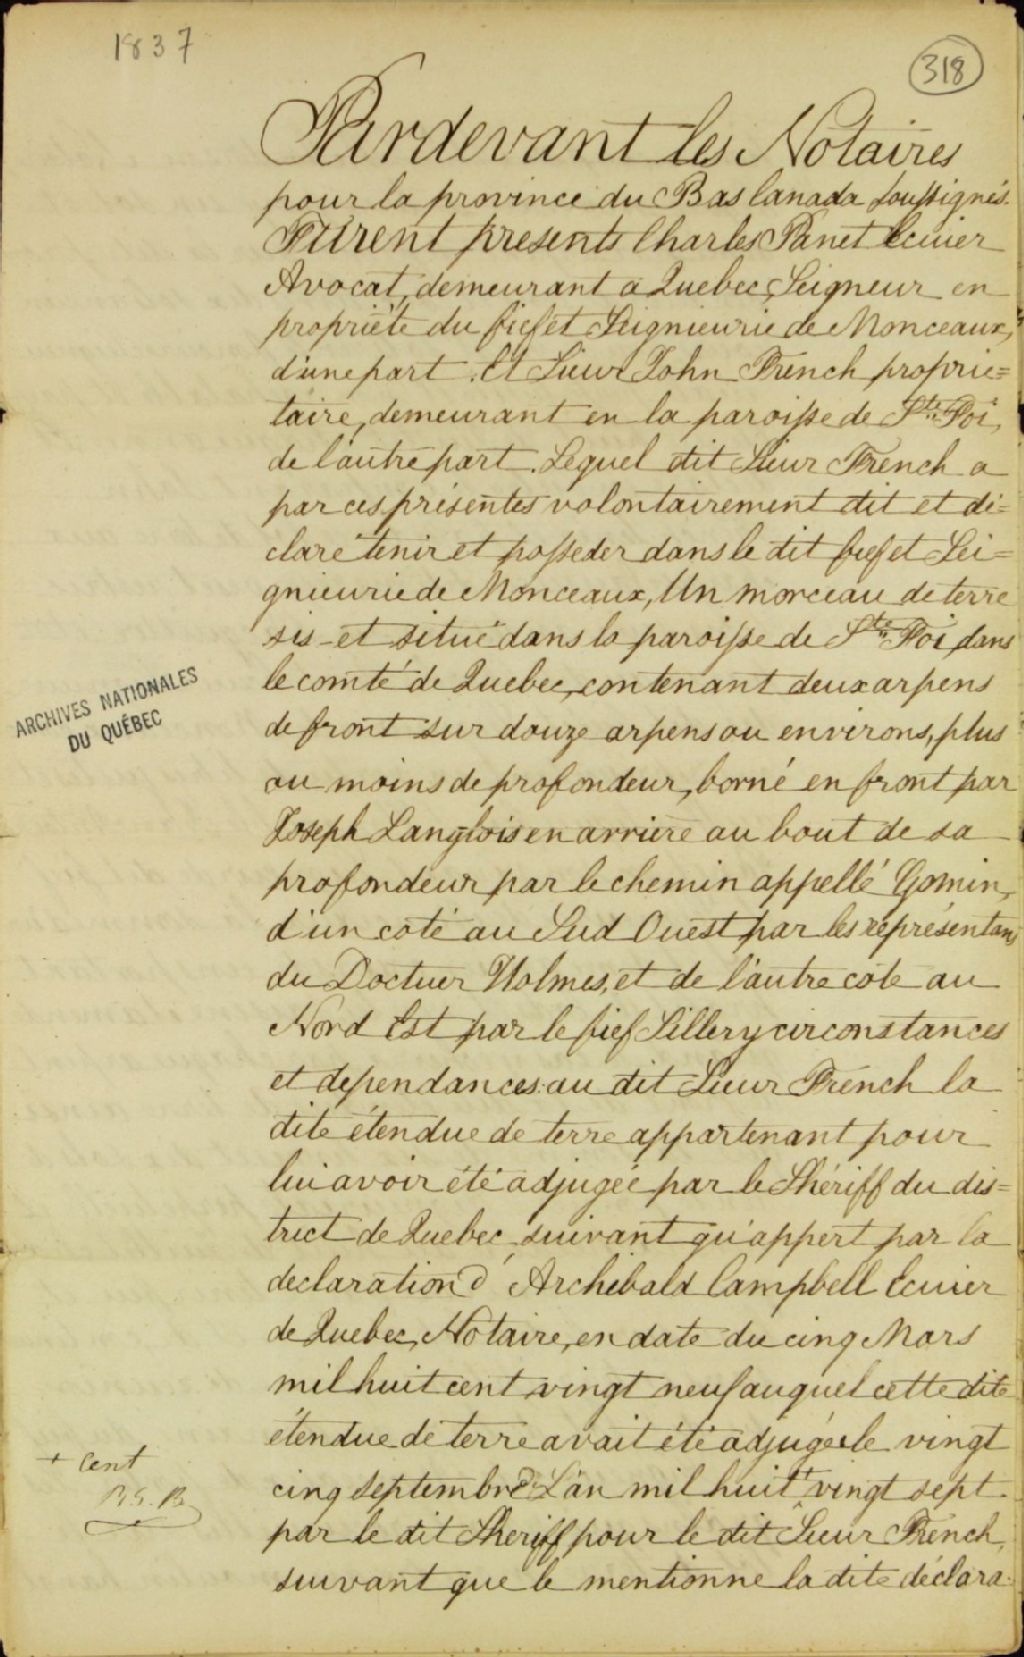 1837
318
Pardevant les Notaires
pour la province du Bas Canada soussignés.
Furent presents Charles Panet Ecuier
Avocat, demeurant à Quebec, Seigneur en
propriété du fief et Seignieurie de Monceaux,
d'une part. Et Sieur John French proprie=
taire, demeurant en la paroisse de Ste Foi,
de l'autre part. Lequel dit Sieur French a
par ces présentes volontairement dit et dé=
claré tenir et posseder dans le dit fief et Sei=
gnieurie de Monceaux, Un morceau de terre
sis et situé dans la paroisse de Ste Foi dans
le comté de Quebec, contenant deux arpens
de front sur douze arpens ou environs, plus
ou moins de profondeur, borné en front par
Joseph Langlois en arriere au bout de sa
profondeur par le chemin appellé Gomin,
d'un coté au Sud Ouest par les représentans
du Doctuer Holmes, et de l'autre coté au
Nord Est par le fief Sillery circonstances
et dependances au dit Sieur French la
dite étendue de terre appartenant pour
lui avoir été adjugée par le Shériff du dis=
trict de Quebec, suivant qu'appert par la
declaration d'Archibald Campbell Ecuier
de Quebec, Notaire, en date du cinq Mars
mil huit cent vingt neuf auquel cette dite
étendue de terre avait été adjugée le vingt
cinq septembre L'an mil huit + vingt sept
par le dit Sheriff pour le dit Sieur French,
suivant que le mentionne la dite déclara-
ARCHIVES NATIONALES
DU QUÉBEC
+ Cent